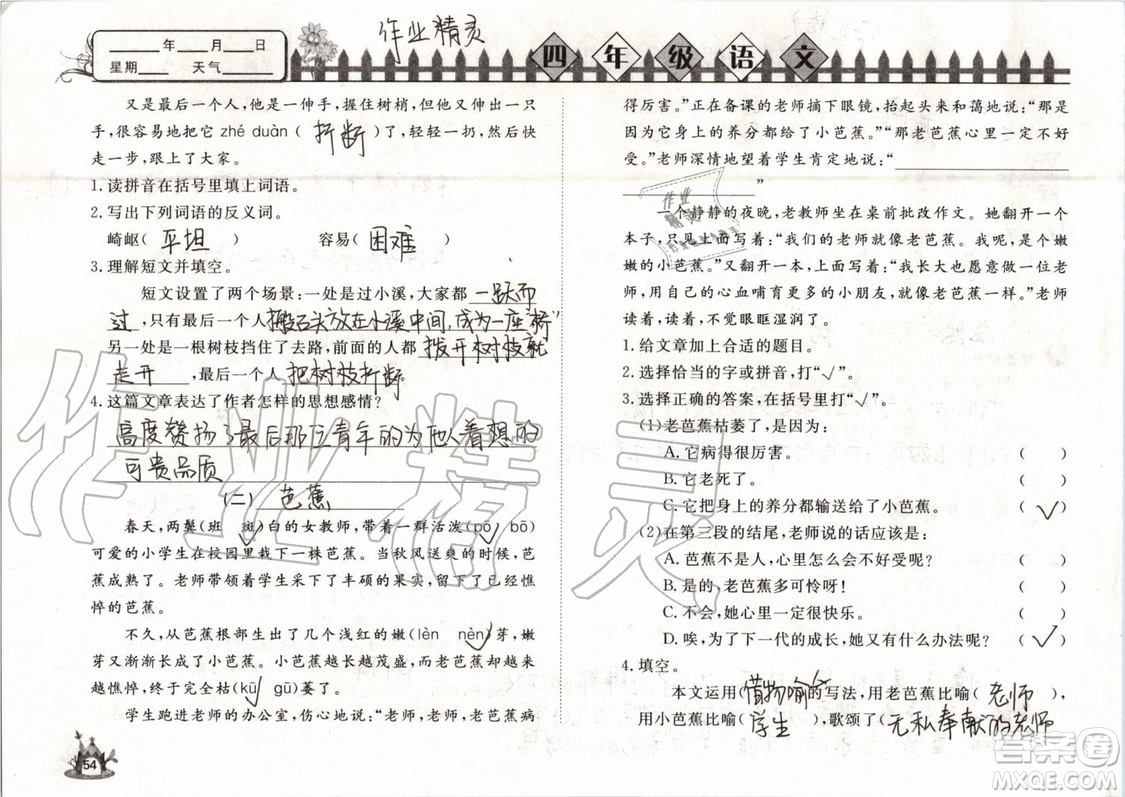 作业精灵
____年____月____日
星期____ 天气______
四年级语文
又是最后一个人,他是一伸手,握住树梢,但他又伸出一只
手,很容易地把它 zhé duàn( 折断 )了,轻轻一扔,然后快
走一步,跟上了大家。
1.读拼音在括号里填上词语。
2.写出下列词语的反义词。
崎岖( 平坦 ) 容易( 困难 )
3.理解短文并填空。
短文设置了两个场景:一处是过小溪,大家都 一跃而
过 ,只有最后一个人 搬石头放在小溪中间,成为一座“桥”
另一处是一根树枝挡住了去路,前面的人都 拨开树枝就
走开 ,最后一个人 把树枝折断。
4.这篇文章表达了作者怎样的思想感情?
高度赞扬了最后那位青年的为他人着想的
可贵品质
(二) 芭蕉
春天,两鬓(班 斑√)白的女教师,带着一群活泼(pō√ bō)
可爱的小学生在校园里栽下一株芭蕉。当秋风送爽的时候,芭
蕉成熟了。老师带领着学生采下了丰硕的果实,留下已经憔
悴的芭蕉。
不久,从芭蕉根部生出了几个浅红的嫩(lèn nèn√)芽,嫩
芽又渐渐长成了小芭蕉。小芭蕉越长越茂盛,而老芭蕉却越来
越憔悴,终于完全枯(kū√ gū)萎了。
学生跑进老师的办公室,伤心地说:“老师,老师,老芭蕉病
54
得厉害。”正在备课的老师摘下眼镜,抬起头来和蔼地说:“那是
因为它身上的养分都给了小芭蕉。”“那老芭蕉心里一定不好
受。”老师深情地望着学生肯定地说:“______
______”
一个静静的夜晚,老教师坐在桌前批改作文。她翻开一个
本子,只见上面写着:“我们的老师就像老芭蕉。我是,是一个嫩
嫩的小芭蕉。”又翻开一本,上面写着:“我长大也愿意做一位老
师,用自己的心血哺育更多的小朋友,就像老芭蕉一样。”老师
读着,读着,不觉眼眶湿润了。
1.给文章加上合适的题目。
2.选择恰当的字或拼音,打“√”。
3.选择正确的答案,在括号里打“√”。
(1)老芭蕉枯萎了,是因为:
A.它病得很厉害。 ( )
B.它老死了。 ( )
C.它把身上的养分都输送给了小芭蕉。 ( √ )
(2)在第三段的结尾,老师说的话应该是:
A.芭蕉不是人,心里怎么会不好受呢? ( )
B.是的,老芭蕉多可怜呀! ( )
C.不会,她心里一定很快乐。 ( )
D.唉,为了下一代的成长,她又有什么办法呢? ( √ )
4.填空。
本文运用( 借物喻人 )的写法,用老芭蕉比喻( 老师 ),
用小芭蕉比喻( 学生 ),歌颂了( 无私奉献的老师
作业精灵
答案圈
MXQE.COM